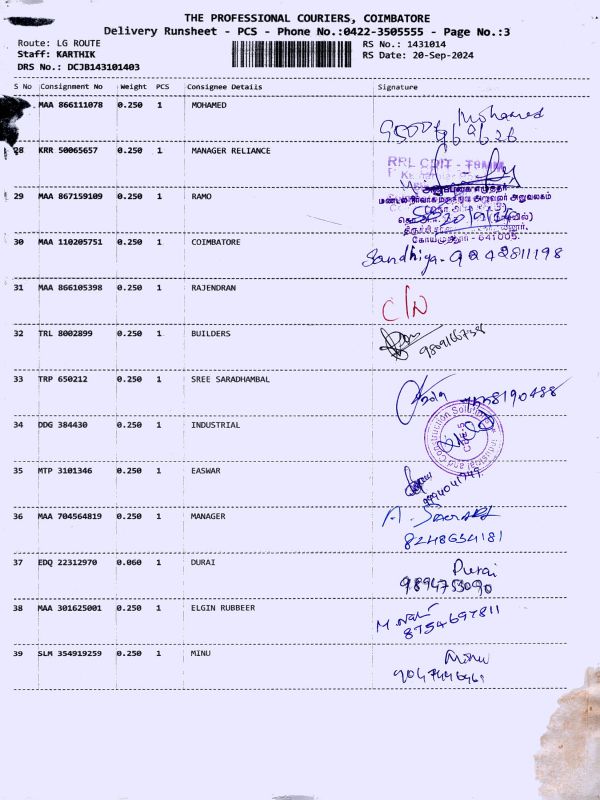 THE PROFESSIONAL COURIERS, COIMBATORE
Delivery Runsheet - PCS - Phone No.:0422-3505555 - Page No.:3
Route: LG ROUTE
RS No.: 1431014
Staff: KARTHIK
RS Date: 20-Sep-2024
DRS No.: DCJB143101403
S No Consignment No Weight PCS Consignee Details Signature
MAA 866111078 0.250 1 MOHAMED
Mohamed
28 KRR 50065657 0.250 1 MANAGER RELIANCE
29 MAA 867159109 0.250 1 RAMO
கோயமுத்தூர் - 641005.
30 MAA 110205751 0.250 1 COIMBATORE
Sandhiya - 9242811198
31 MAA 866105398 0.250 1 RAJENDRAN
C/N
32 TRL 8002899 0.250 1 BUILDERS
33 TRP 650212 0.250 1 SREE SARADHAMBAL
34 DDG 384430 0.250 1 INDUSTRIAL
35 MTP 3101346 0.250 1 EASWAR
9994041749
36 MAA 704564819 0.250 1 MANAGER
8248654181
37 EDQ 22312970 0.060 1 DURAI
Durai
9894753090
38 MAA 301625001 0.250 1 ELGIN RUBBEER
8754697811
39 SLM 354919259 0.250 1 MINU
Minu
9047446461